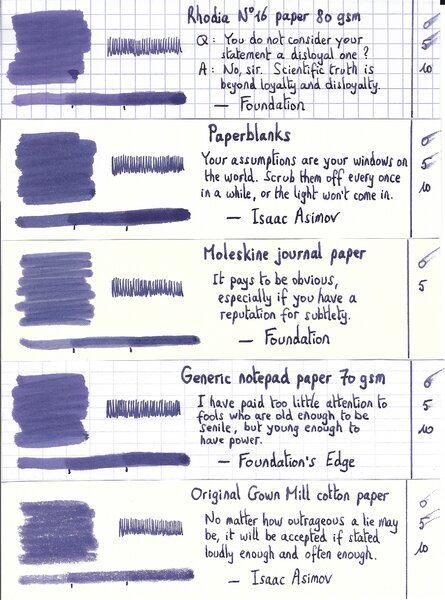 Rhodia N°16 paper 80 gsm
0
Q: You do not consider your
5
statement a disloyal one?
A: No, sir. Scientific truth is
10
beyond loyalty and disloyalty.
— Foundation
Paperblanks
0
Your assumptions are your windows on
5
the world. Scrub them off every once
10
in a while, or the light won't come in.
— Isaac Asimov
Moleskine journal paper
0
It pays to be obvious,
5
especially if you have a
reputation for subtlety.
— Foundation
Generic notepad paper 70 gsm
0
I have paid too little attention to
5
fools who are old enough to be
senile, but young enough to
10
have power.
— Foundation's Edge
Original Crown Mill cotton paper
0
No matter how outrageous a lie may
5
be, it will be accepted if stated
loudly enough and often enough.
10
— Isaac Asimov